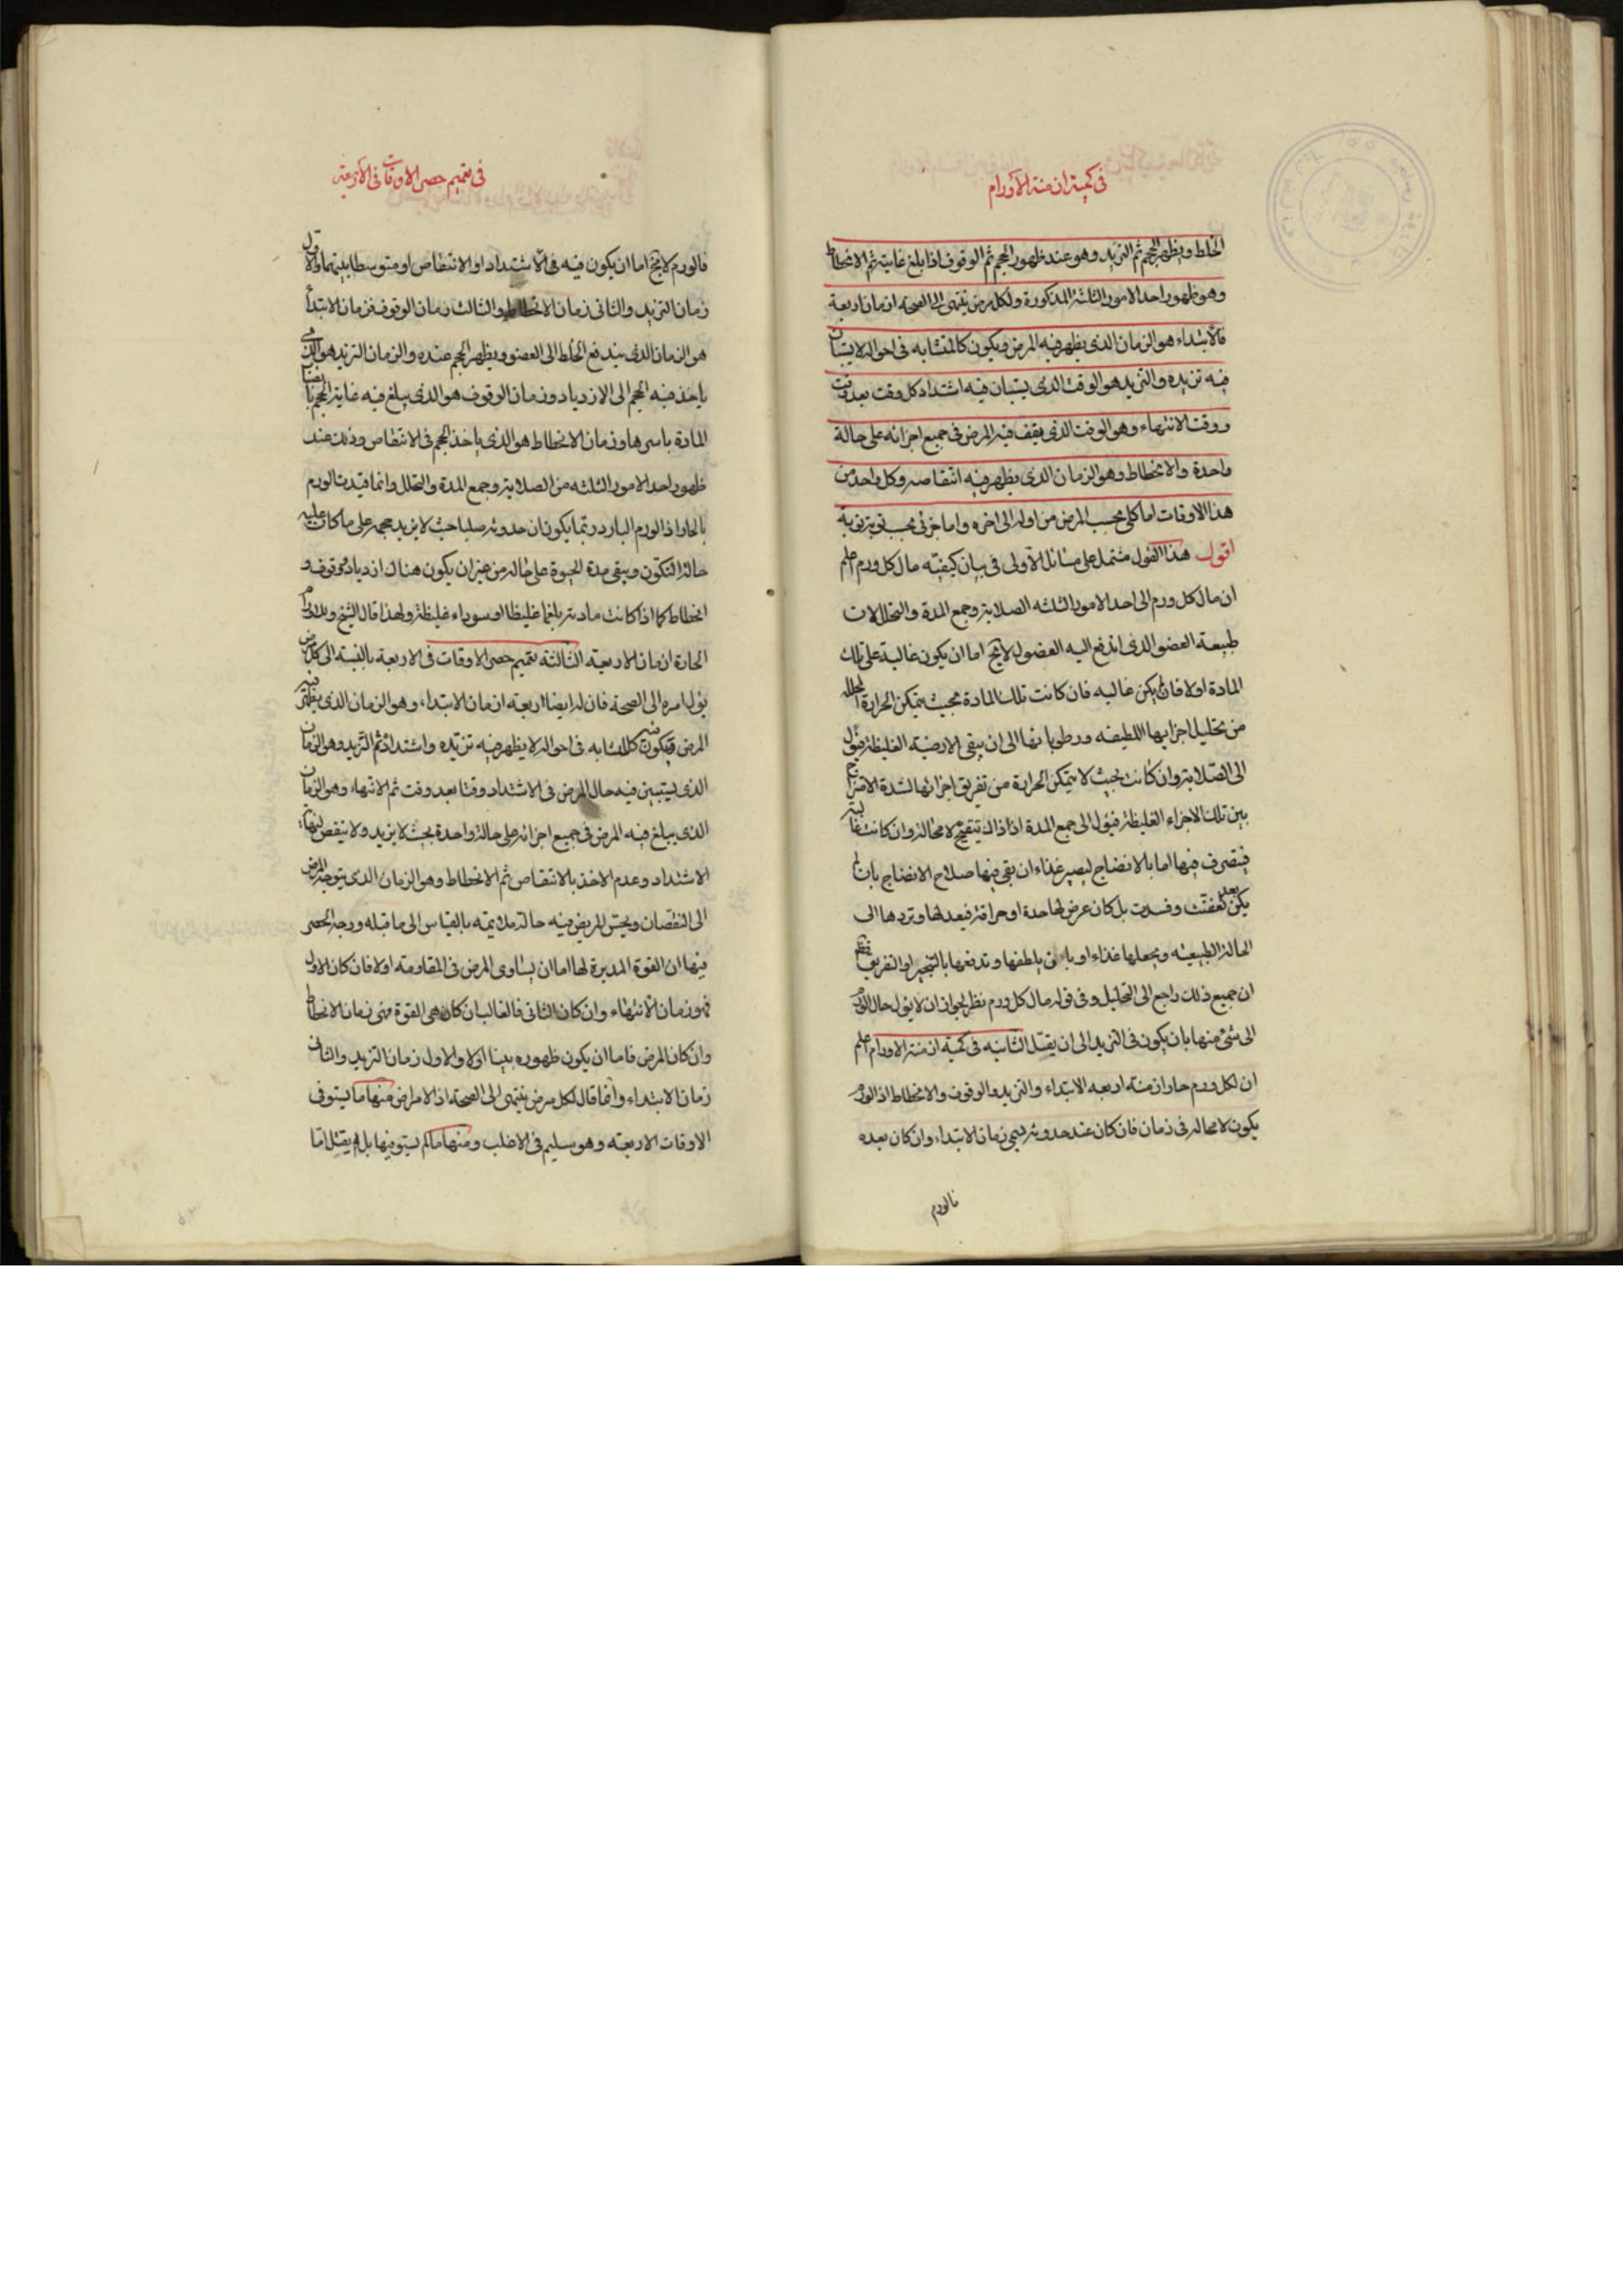 في كمية ازمنة الاورام
الخلط ويظهر الحجم ثم التزيد وهو عند ظهور الحجم ثم الوقوف اذا بلغ غايته ثم الانحطاط
وهو ظهور احد الامور الثلثة المذكورة ولكل مرض ينتهى الى الصحة ازمان اربعة
فالابتداء هو الزمان الذى يظهر فيه المرض ويكون كالمتشابه فى احواله لا يستبان
فيه تزيده والتزيد هو الوقت الذى يستبان فيه اشتداد كل وقت بعد وقت
ووقت الانتهاء وهو الوقت الذى يقف فيه المرض فى جميع اجزائه على حالة
واحدة والانحطاط وهو الزمان الذى يظهر فيه انتقاصه وكل واحد من
هذا الاوقات اما كلى بحسب المرض من اوله الى اخره واما جزئى بحسب نوبة نوبة
اقول هذا القول مشتمل على مسائل الاولى فى بيان كيفية مال كل ورم اعلم
ان مال كل ورم الى احد الامور الثلثه الصلابة وجمع المدة والتحلل لان
طبيعة العضو الذى اندفع اليه الفضول لايخ اما ان يكون غالبة على تلك
المادة اولا فان لم يكن غالبه فان كانت تلك المادة بحيث يتمكن الحرارة المحلله
من تحليل اجزايها اللطيفه ورطوباتها الى ان يبقى الارضية الغليظة فيؤل
الى الصلابة وان كانت بحيث لا يتمكن الحرارة من تفريق اجزائها لشدة الامتزاج
بين تلك الاجزاء الغليظة فيؤل الى جمع المدة اذ اذاك يتقيح لا محالة وان كانت غالبة
فيتصرف فيها اما بالانضاج ليصير غذاء ان بقى فيها صلاح الانضاج بان لم
يكن بعد تعفنت وفسدت بل كان عرض لها حدة او حراقة فيعدلها وتردها الى
الحالة الطبيعيه ويجعلها غذاء او بان يلطفها وتدفعها بالتبخير او التفريق فظهر
ان جميع ذلك راجع الى التحليل وفى قوله مال كل ورم نظر لجواز ان لا يؤل حال الورم
الى شئ منها بان يكون فى التزيد الى ان يقتل الثانيه فى كمية ازمنة الاورام اعلم
ان لكل ورم حار ازمنة اربعه الابتداء والتزيد والوقوف والانحطاط اذ الورم
يكون لا محالة فى زمان فان كان عند حدوثه يسمى زمان الابتداء وان كان بعده
فالورم
في تعميم حصر الاوقات فى الاربعة
فالورم لايخ اما ان يكون فيه فى الاشتداد او الانتقاص او متوسطا بينهما والاول
زمان التزيد والثانى زمان الانحطاط والثالث زمان الوقوف فزمان الابتدأ
هو الزمان الذى يندفع الخلط الى العضو ويظهر الحجم عنده والزمان التزيد هو الذى
ياخذ فيه الحجم الى الازدياد وزمان الوقوف هو الذى يبلغ فيه غاية الحجم بانصباب
المادة باسرها وزمان الانحطاط هو الذى ياخذ الحجم فى الانتقاص وذلك عند
ظهور احد الامور الثلثه من الصلابة وجمع المدة والتحلل وانما قيدت الورم
بالحار اذ الورم البارد ربما يكون ان حدوثه صلبا حيث لا يزيد حجمه على ما كان عليه
حالة التكون ويبقى مدة الحيوة على حاله من غير ان يكون هناك ازدياد ووقوف و
انحطاط كما اذا كانت مادته بلغما غليظا او سوداء غليظة ولهذا قال الشيخ وللاورام
الحارة ازمان الاربعة الثالثة تعميم حصر الاوقات فى الاربعة بالنسبة الى كل مرض
يؤل امره الى الصحة فان له ايضا اربعة ازمان الابتداء وهو الزمان الذى يظهر فيه
المرض ويكون فيه كالمتشابه فى احواله لا يظهر فيه تزيده واشتداده ثم التزيد وهو الزمان
الذى يستبين فيه حال المرض فى الاشتداد وقتا بعد وقت ثم الانتهاء وهو الزمان
الذى يبلغ فيه المرض فى جميع اجزائه على حالة واحدة بحيث لا يزيد ولا ينقص لانتهاء
الاشتداد وعدم الاخذ بالانتقاص ثم الانحطاط وهو الزمان الذى يتوجه المرض
الى النقصان ويحس المريض فيه حالة ملايمة بالقياس الى ما قبله ووجه الحصر
فيها ان القوة المدبرة لها اما ان يساوى المرض فى المقاومة اولا فان كان الاول
فهو زمان الانتهاء وان كان الثانى فالغالب ان كان هى القوة فهى زمان الانحطاط
وان كان المرض فاما ان يكون ظهوره بينا اولا والاول زمان التزيد والثانى
زمان الابتداء وانما قال لكل مرض ينتهى الى الصحة اذ الامراض منها ما يستوفى
الاوقات الاربعة وهو سليم فى الاغلب ومنها ما لم يستوفيها بل يقتل اما